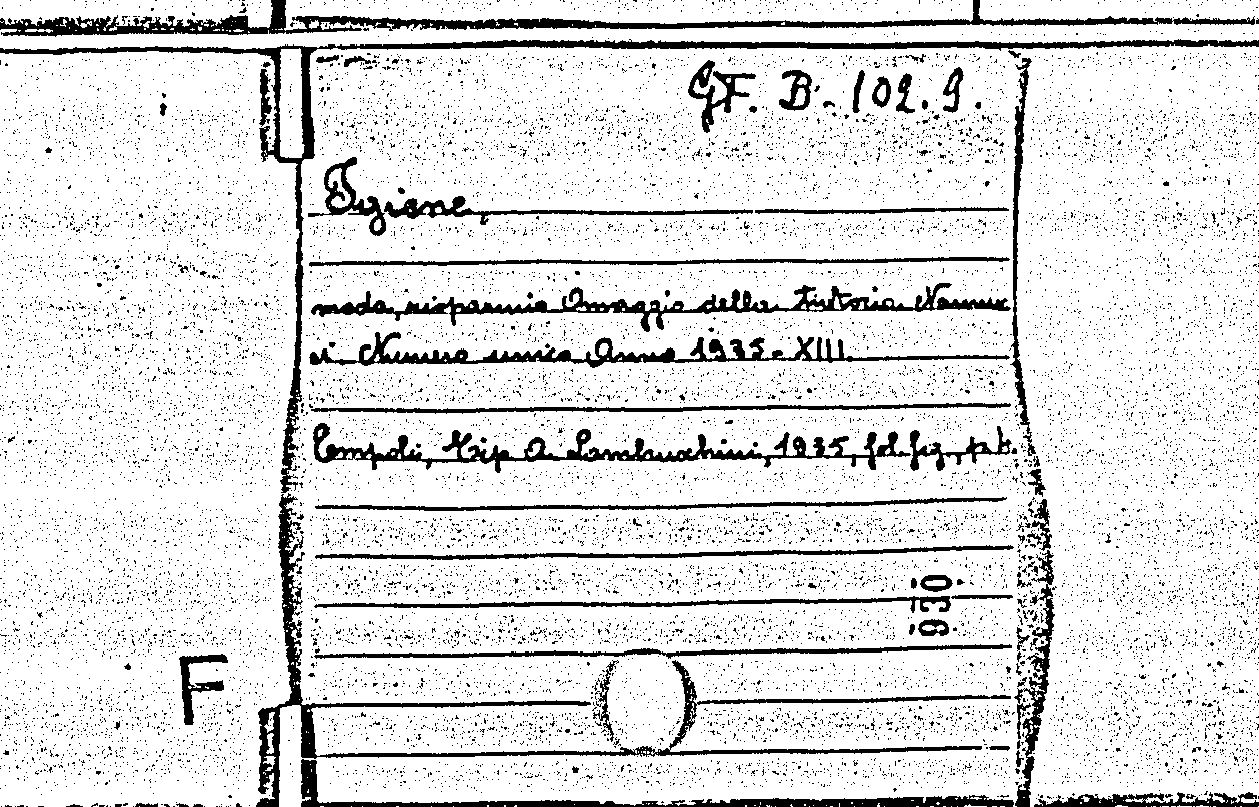 GF. B. 102. 9.
Igiene,
moda, risparmio Omaggio della Tintoria
ei. Numero unico Anno 1935-XIII.
Empoli, Tip A. Lambruschini, 1935, fol. fig.,
930.
F